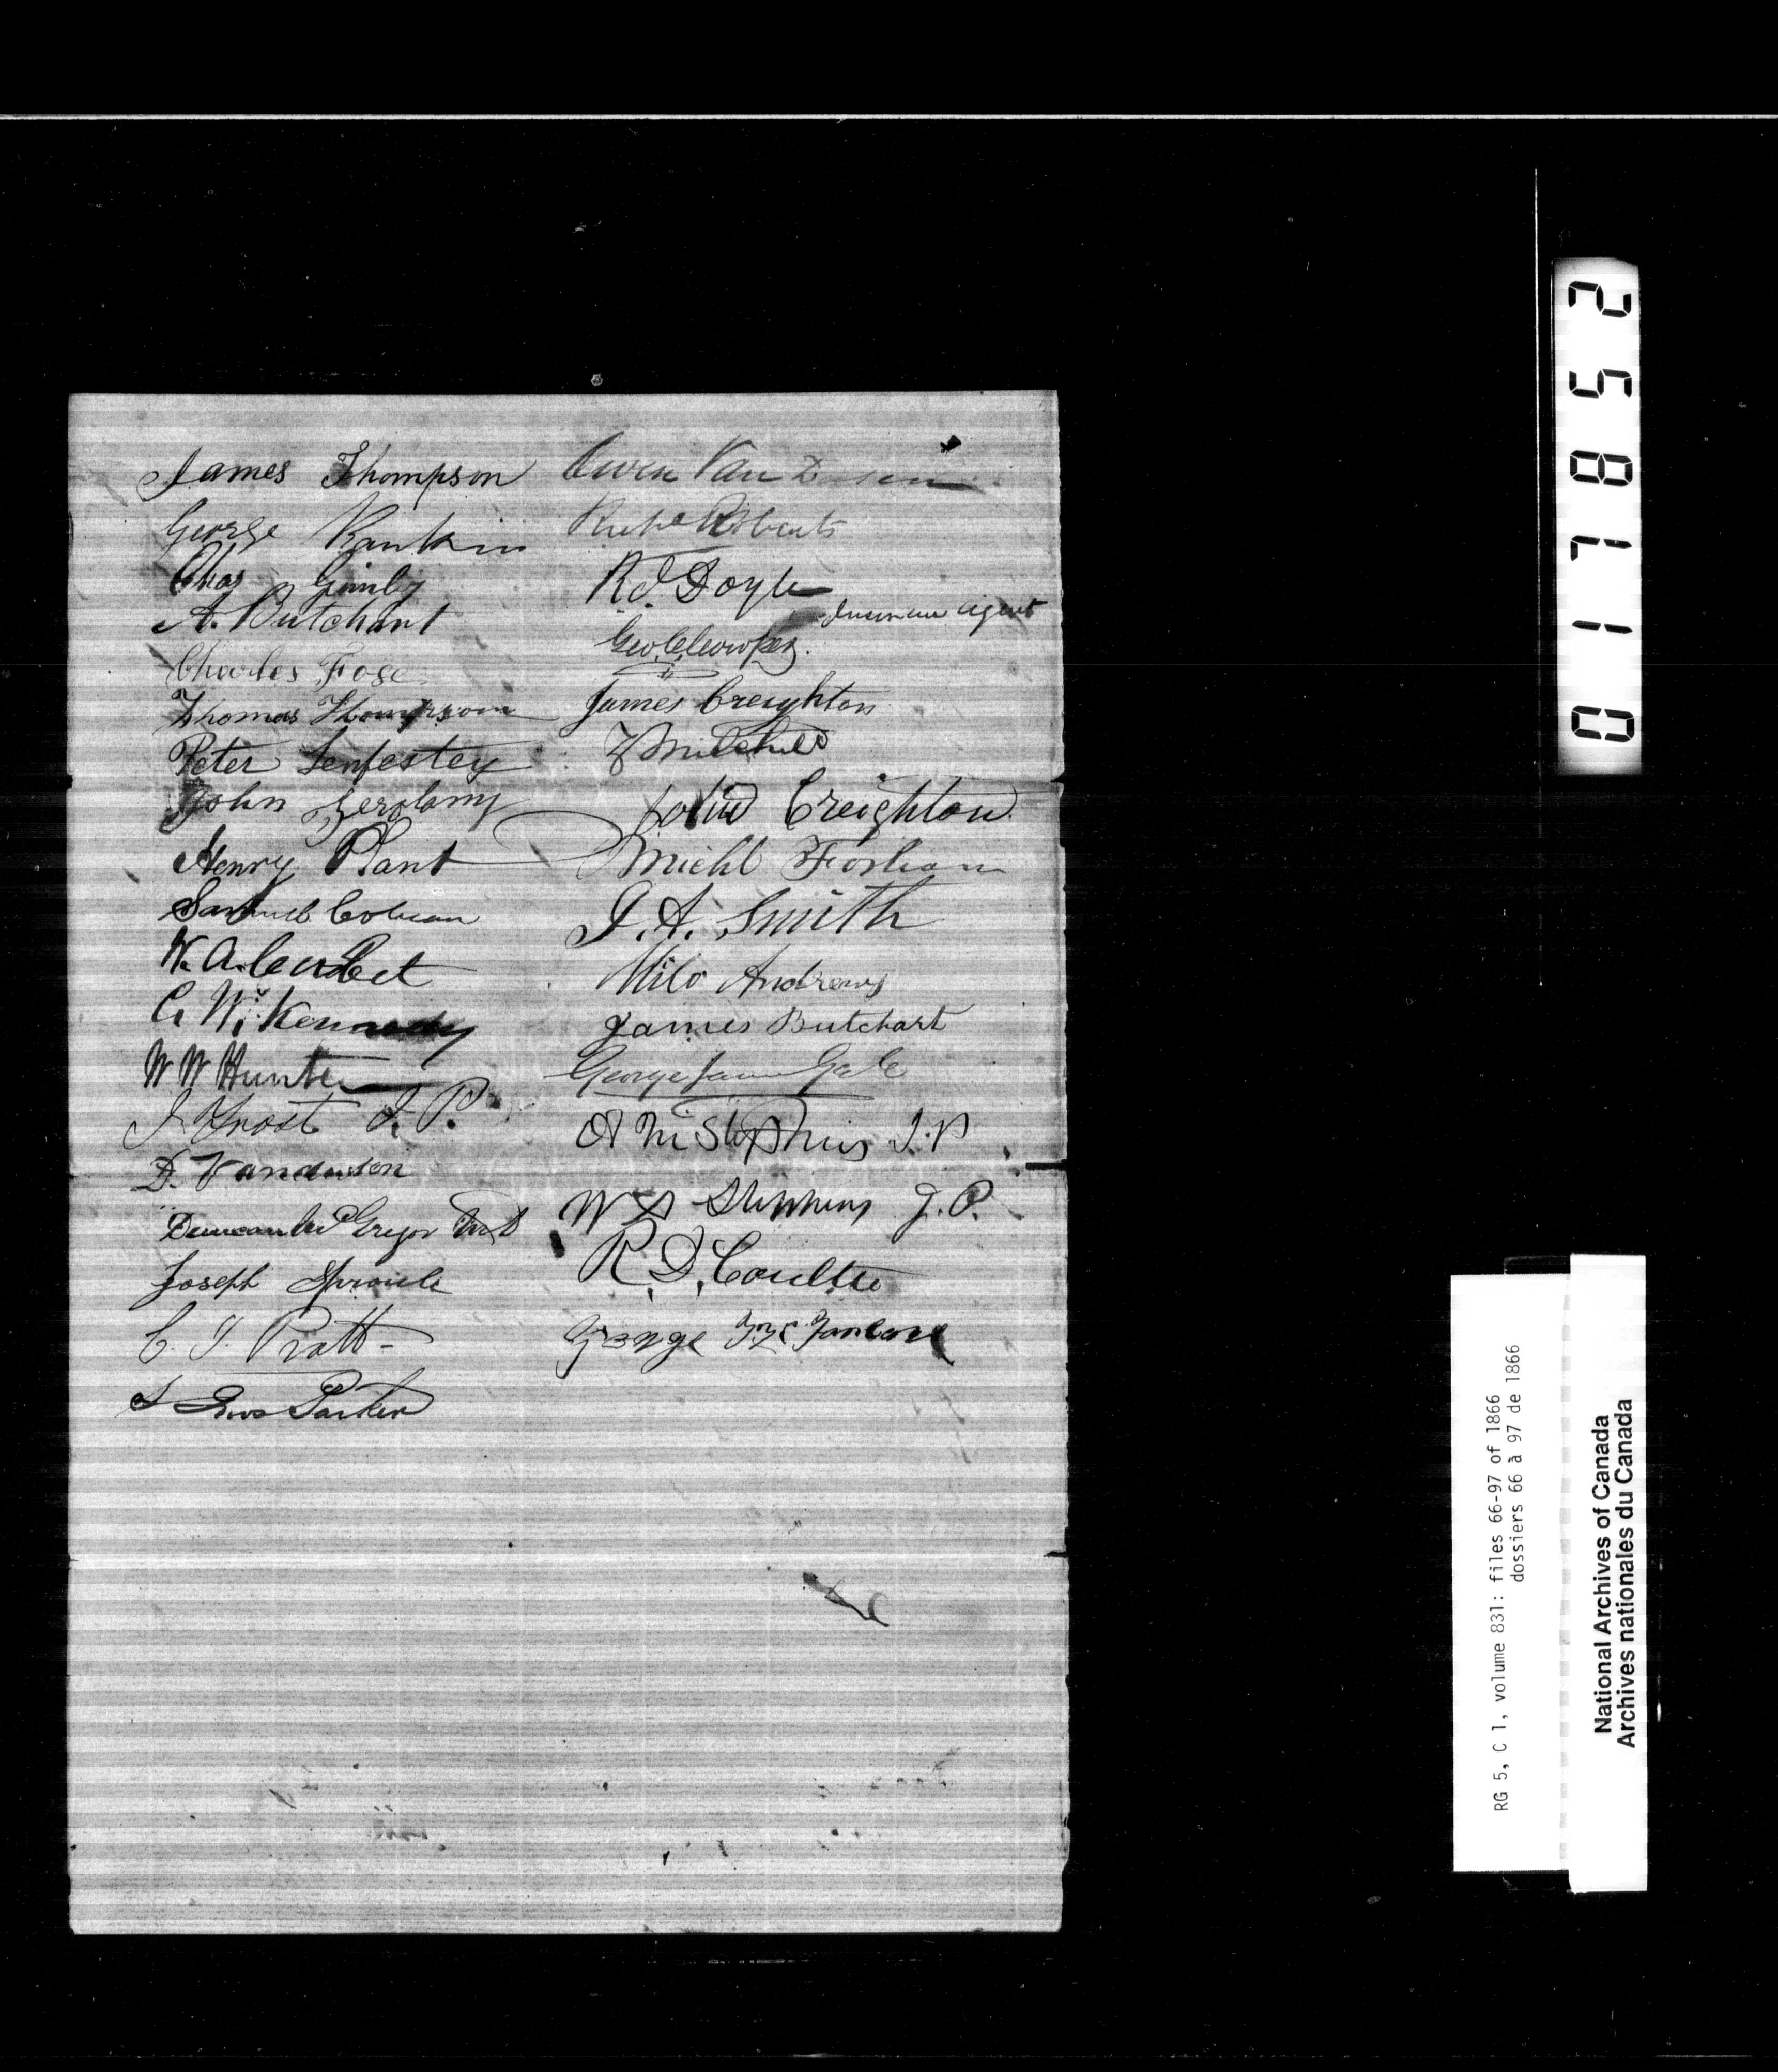 James Thompson
George Rankin
Chas Gimby
A. Butchart
Charles Fose
Thomas Thompson
Peter Lenfestey
John Gerolamy
Henry Plant
Samuel Cobean
W. A.
C. W. Kennedy
W W Hunter
J Frost J. P.
D. Vandusen
Duncan McGregor
Joseph Sproule
C. J. Pratt
Parker
Owen Van Dusen
Roberts
R J Doyle
Insurance Agent
Geo.
James Creighton
John Creighton
Michl
J. A. Smith
Milo Andrews
James Butchart
George James Gale
A M Stephens J.P
W Stephens J.P.
R. D. Coulter
George
017852
RG 5, C 1, volume 831: files 66-97 of 1866
dossiers 66 à 97 de 1866
National Archives of Canada
Archives nationales du Canada